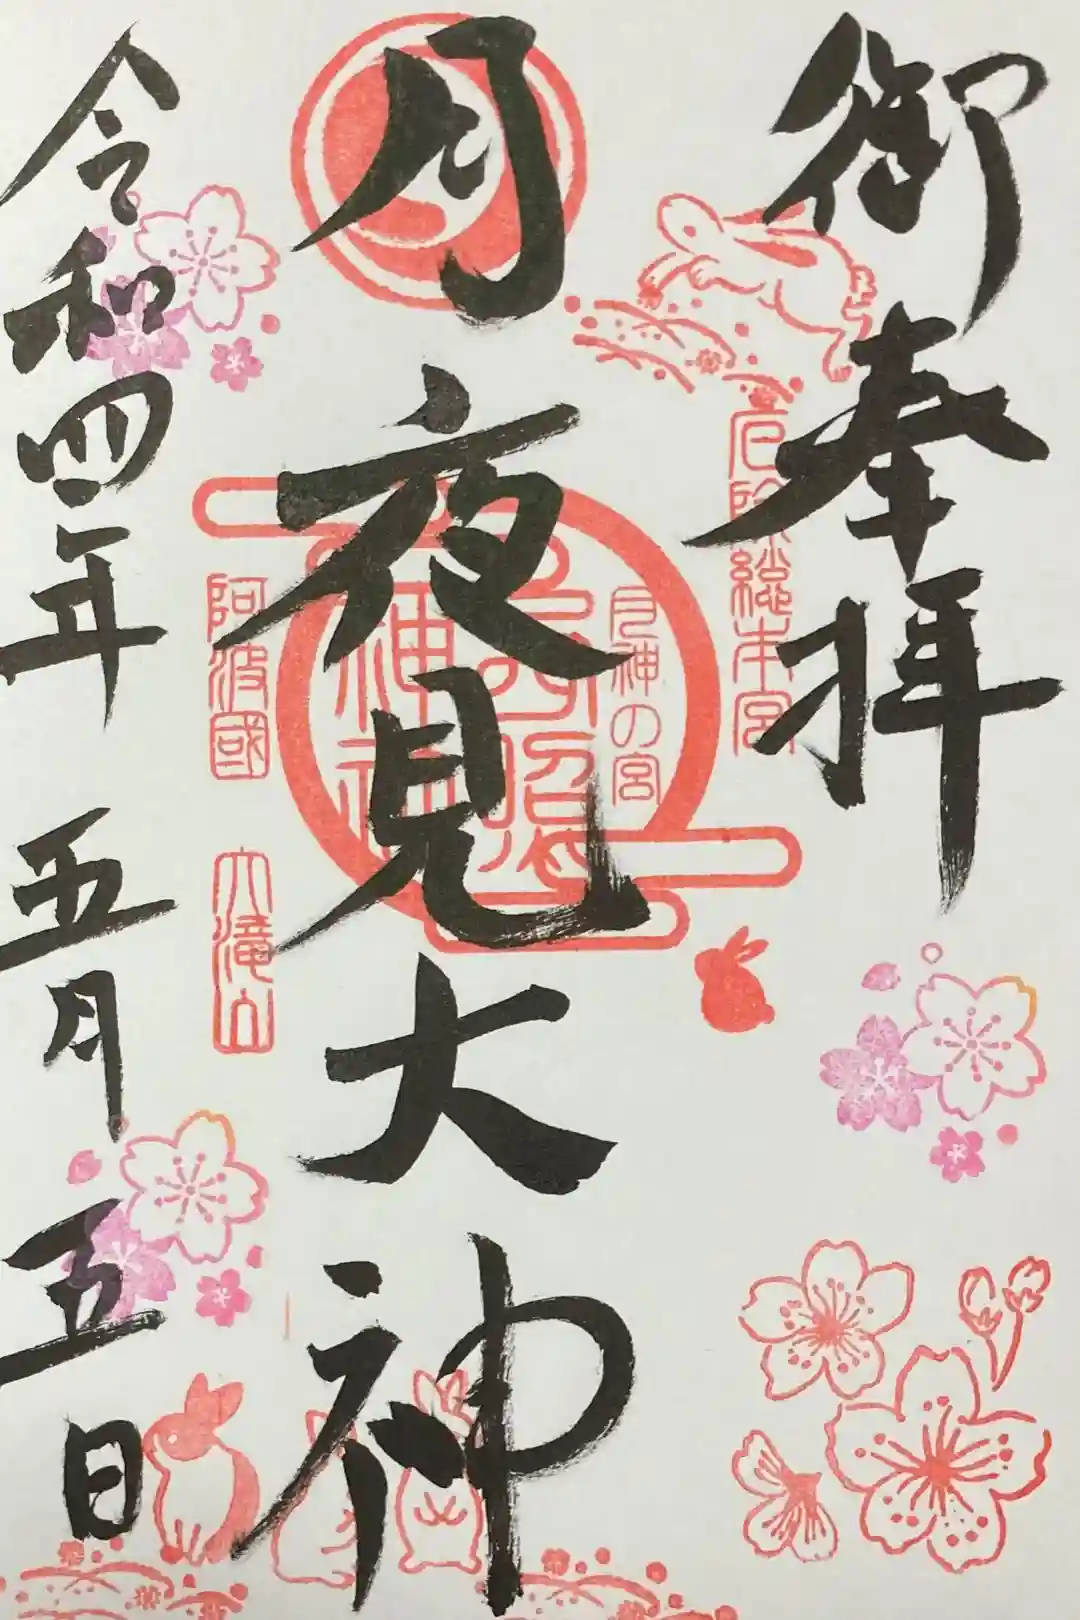 御奉拝
厄除総本宮
月夜見大神
月神の宮
神社
阿波國
大滝山
令和四年
五月
五日